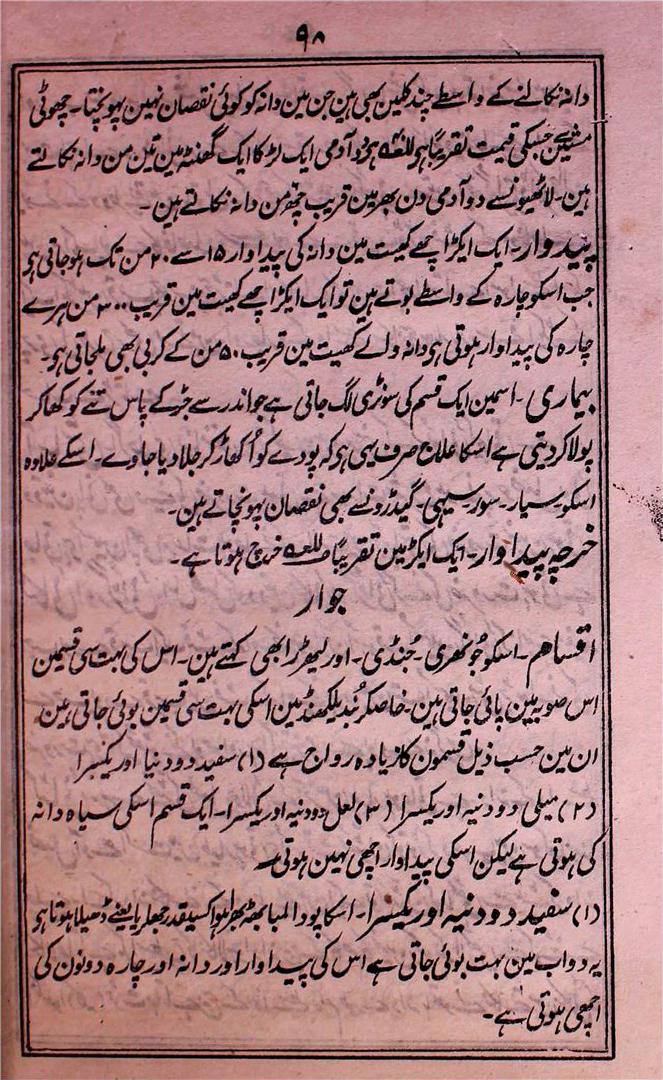 ۹۸
دانہ نکالنے کے واسطے چند کلین بھی ہین جن مین دانہ کو کوئی نقصان نہین پہونچتا۔ چھوٹی
مشین جسکی قیمت تقریباً ہی دو آدمی ایک لڑکا ایک گھنٹہ مین تین من دانہ نکالتے
ہین۔ لاٹھیونسے دو آدمی دن بھر مین قریب چھ من دانہ نکالتے ہین۔
پیدوار۔ ایک ایکڑ اچھے کھیت مین دانہ کی پیداوار ۱۵ سے ۲۰ من تک ہوجاتی ہی
جب اسکو چارہ کے واسطے بوتے ہین تو ایک ایکڑ اچھے کھیت مین قریب ۳۰۰ من ہرے
چارہ کی پیداوار ہوتی ہی دانہ والے کھیت مین قریب ۵۰ من کے کربی بھی ملجاتی ہو۔
بیماری۔ اسمین ایک قسم کی سونڑی لگ جاتی ہے جو اندر سے جڑ کے پاس تنے کو کھا کر
پولا کر دیتی ہے اسکا علاج صرف یہی ہو کہ پودے کو اُکھاڑ کر جلا دیا جاوے۔ اسکے علاوہ
اسکو۔ سیار۔ سور۔ سیہی۔ گیدڑونسے بھی نقصان پہونچاتے ہین۔
خرچہ پیداوار۔ ایک ایکڑ مین تقریباً خرچ ہوتا ہے۔
جوار
اقساھم۔ اسکو جُونھری۔ جُنڈی۔ اور لیھڑرا بھی کہتے ہین۔ اس کی بہت سی قسمین
اس صوبہ مین پائی جاتی ہین۔ خاصکر بُندیلکھنڈ مین اسکی بہت سی قسمین بوئی جاتی ہین
ان مین حسب ذیل قسمون کا زیادہ رواج ہے (۱) سفید دودنیا اوریکسرا
(۲) میلی دودنیہ اوریکسرا (۳) لعل دودنیہ اوریکسرا۔ ایک قسم اسکی سیاہ دانہ
کی ہوتی ہے لیکن اسکی پیداوار اچھی نہین ہوتی۔
(۱) سفید دودنیہ اوریکسرا۔ اسکا پودا لمبا بھٹہ بھرا ہوا کسیقدر جھلرا یعنے ڈھیلا ہوتا ہو
یہ دواب مین بہت بوئی جاتی ہے اس کی پیداوار اور دانہ اور چارہ دونون کی
اچھی ہوتی ہے۔